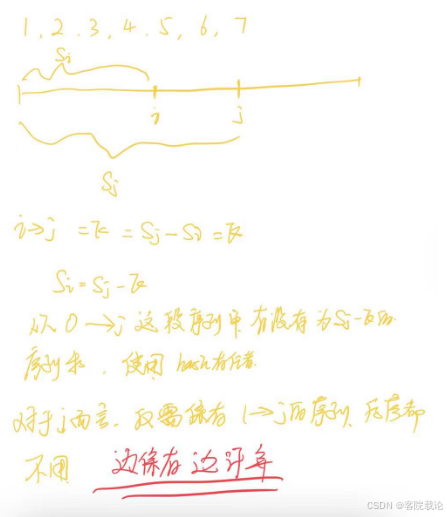 1, 2, 3, 4, 5, 6, 7
Si
i
j
Sj
i→j = k = Sj - Si = k
Si = Sj - k
从 0 → j 这段序列中,有没有为 Sj - k 的
序列和,使用 hash 存储
对于 j 而言,仅需保存 1→j 的序列,后序都
不用 边保存边计算
CSDN @客院载论